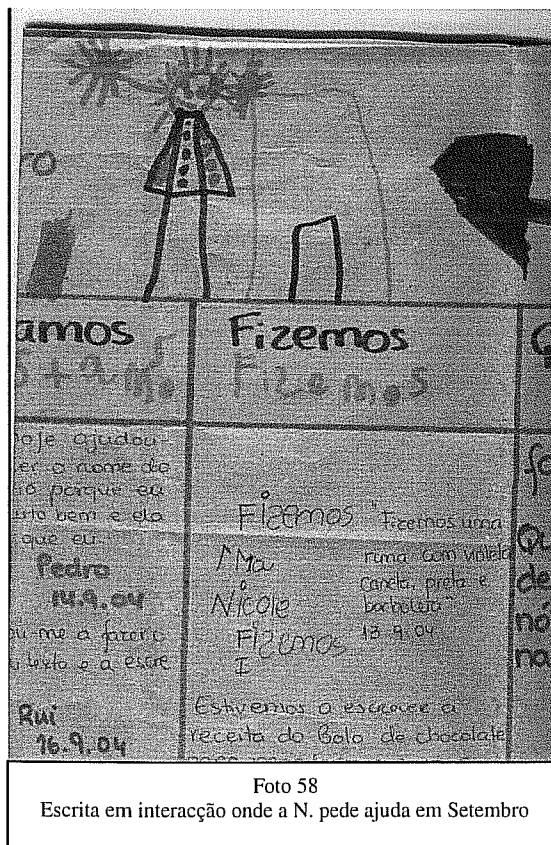 ro
amos
Fizemos
Q
stamos
Fizemos
hoje ajudou-
er o nome do
porque eu
bem e ela
que eu
Pedro
14.9.04
me a fazer
texto e a escre
Rui
16.9.04
Fizemos
Ma
Nicole
Fizemos
I
"Fizemos uma
rima com violeta
caneta, preta e
borboleta"
13.9.04
Estivemos a escrever a
receita do Bolo de chocolate
fo
Qu
de
nó
na
Foto 58
Escrita em interacção onde a N. pede ajuda em Setembro